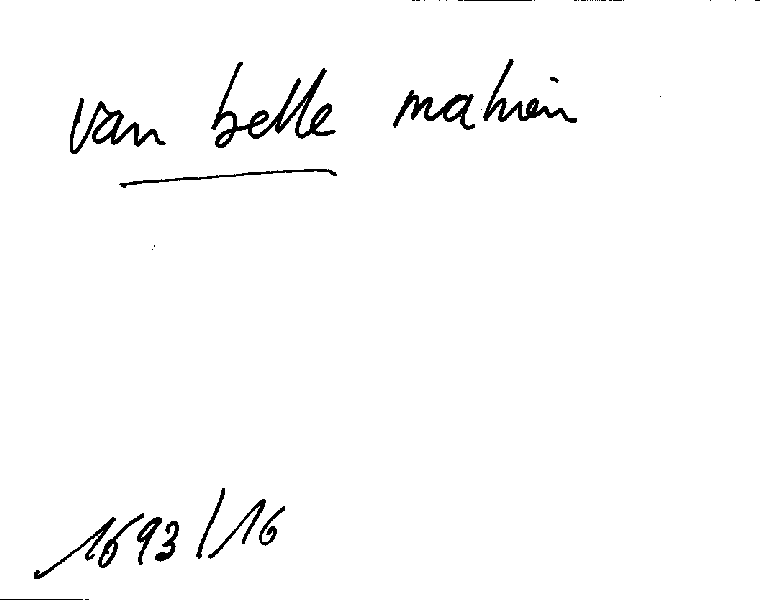 van belle
1693/16